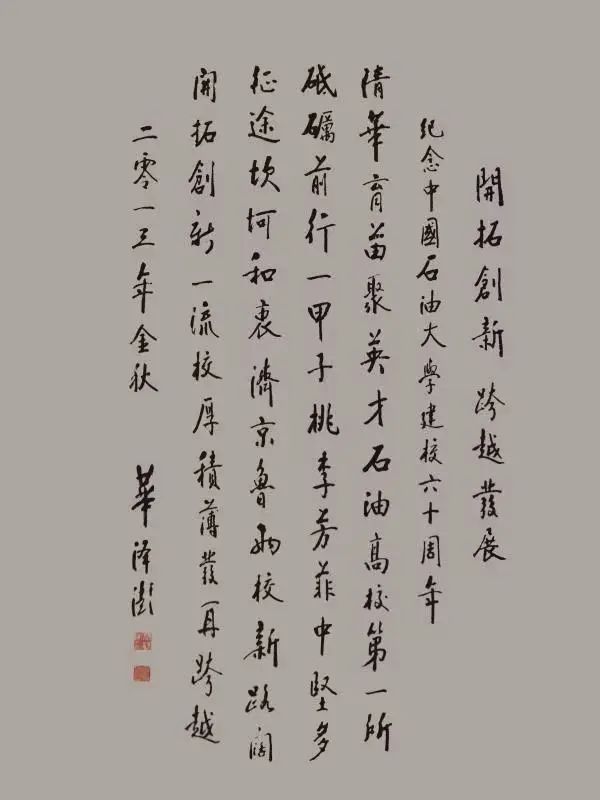 開拓創新 跨越發展
紀念中國石油大學建校六十周年
清華育苗聚英才石油高校第一所
砥礪前行一甲子桃李芳菲中堅多
征途坎坷和衷濟京魯兩校新路闊
開拓創新一流校厚積薄發再跨越
二零一三年金秋 華澤澎